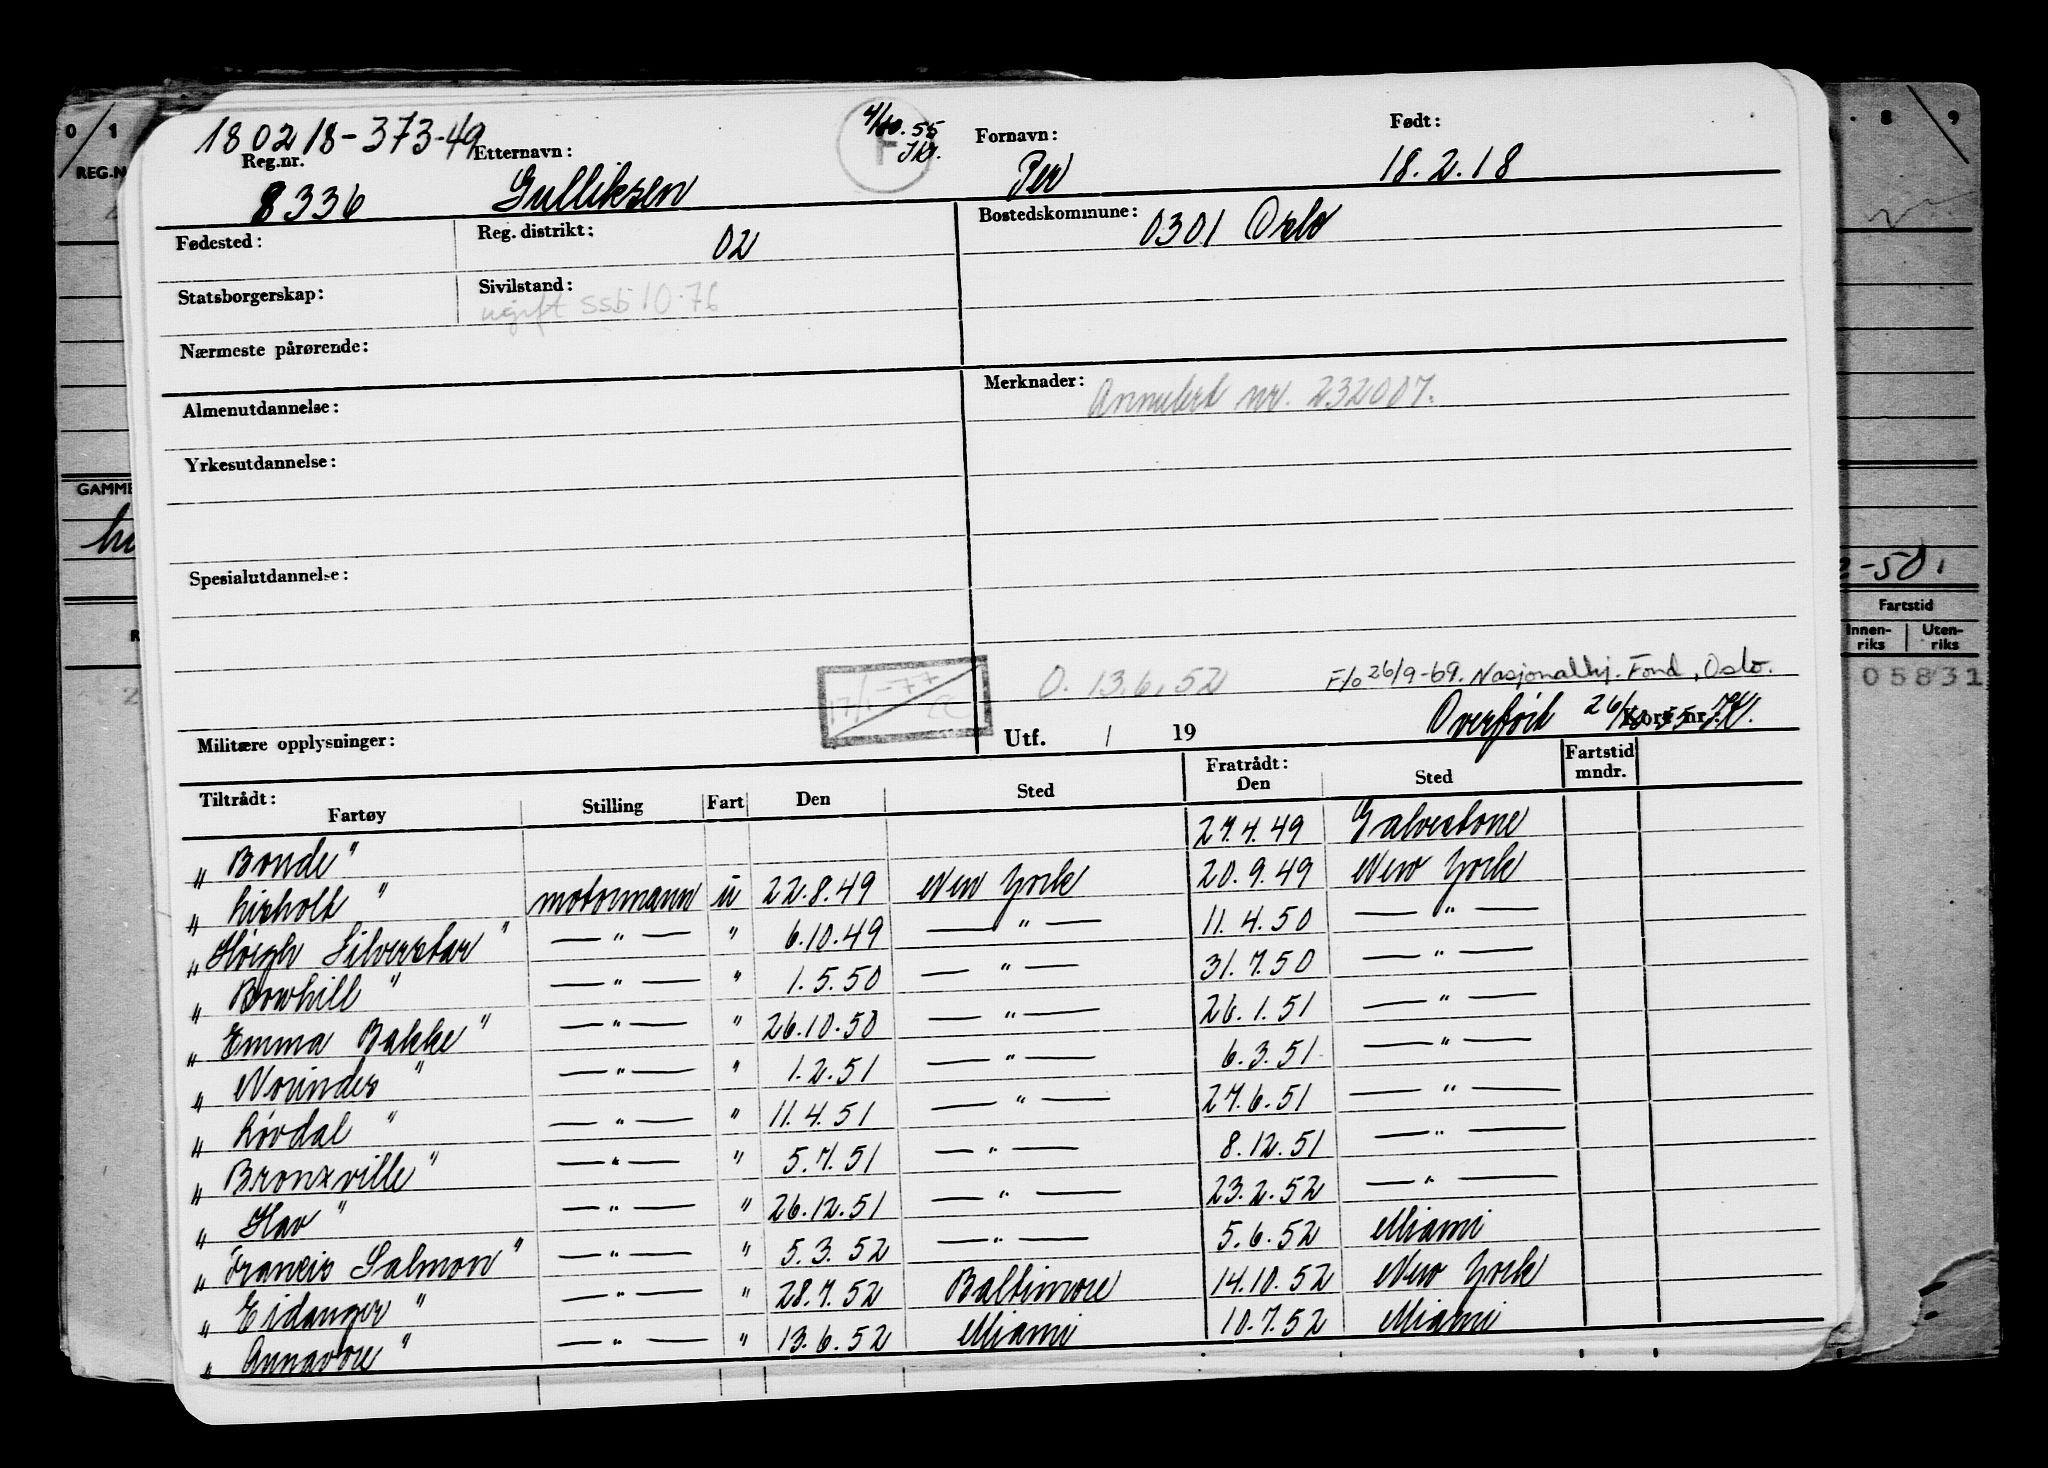 180218-373-49 4/10.55 Født:
Reg.nr. Etternavn: F JKr. Fornavn:
8336 Gulliksen Per 18.2.18
Fødested: Reg. distrikt: 02 Bostedskommune: 0301 Oslo
Statsborgerskap: Sivilstand:
ugift ssb 10-76
Nærmeste pårørende:
Almenutdannelse: Merknader: Annulert nr. 232007.
Yrkesutdannelse:
Spesialutdannelse:
17/1-77 O. 13.6.52 F/o 26/9-69. Nasjonalhj. Fond, Oslo.
Militære opplysninger: Utf. / 19 Overført 26/10.55 JK. Kort nr.
Tiltrådt: Fratrådt: Fartstid
Fartøy Stilling Fart Den Sted Den Sted mndr.
"Bonde" 27.4.49 Galvestone
"Lisholt" motormann u 22.8.49 New York 20.9.49 New York
"Høigh Silverstar" — " — " 6.10.49 — " — 11.4.50 — " —
"Bowhill" — " — " 1.5.50 — " — 31.7.50 — " —
"Emma Bakke" — " — " 26.10.50 — " — 26.1.51 — " —
"Norindes" — " — " 1.2.51 — " — 6.3.51 — " —
"Løvdal" — " — " 11.4.51 — " — 27.6.51 — " —
"Bronxville" — " — " 5.7.51 — " — 8.12.51 — " —
"Hav" — " — " 26.12.51 — " — 23.2.52 — " —
"Francis Salmon" — " — " 5.3.52 — " — 5.6.52 Miami
"Eidanger" — " — " 28.7.52 Baltimore 14.10.52 New York
"Annavore" — " — " 13.6.52 Miami 10.7.52 Miami
0/1
REG.N
GAMME
8/9
2-50.
Fartstid
Innen-riks Uten-riks
05831